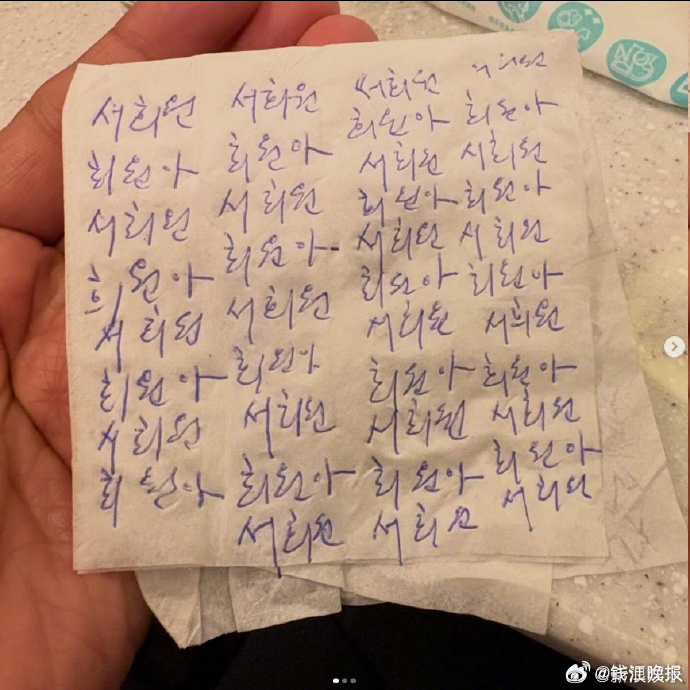 서희원
희원아
서희원
희원아
서희원
희원아
서희원
희원아
서희원
희원아
서희원
희원아
서희원
희원아
서희원
희원아
서희원
서희원
희원아
서희원
희원아
서희원
희원아
서희원
희원아
서희원
희원아
서희원
서희원
희원아
서희원
희원아
서희원
희원아
서희원
희원아
서희원
희원아
서희원
@钱江晚报